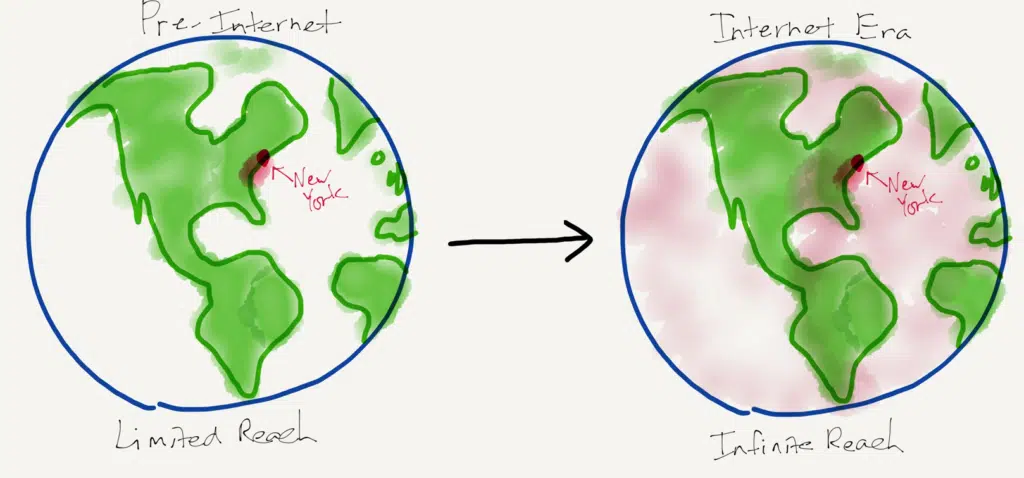 Pre-Internet
New
York
Limited Reach
Internet Era
New
York
Infinite Reach